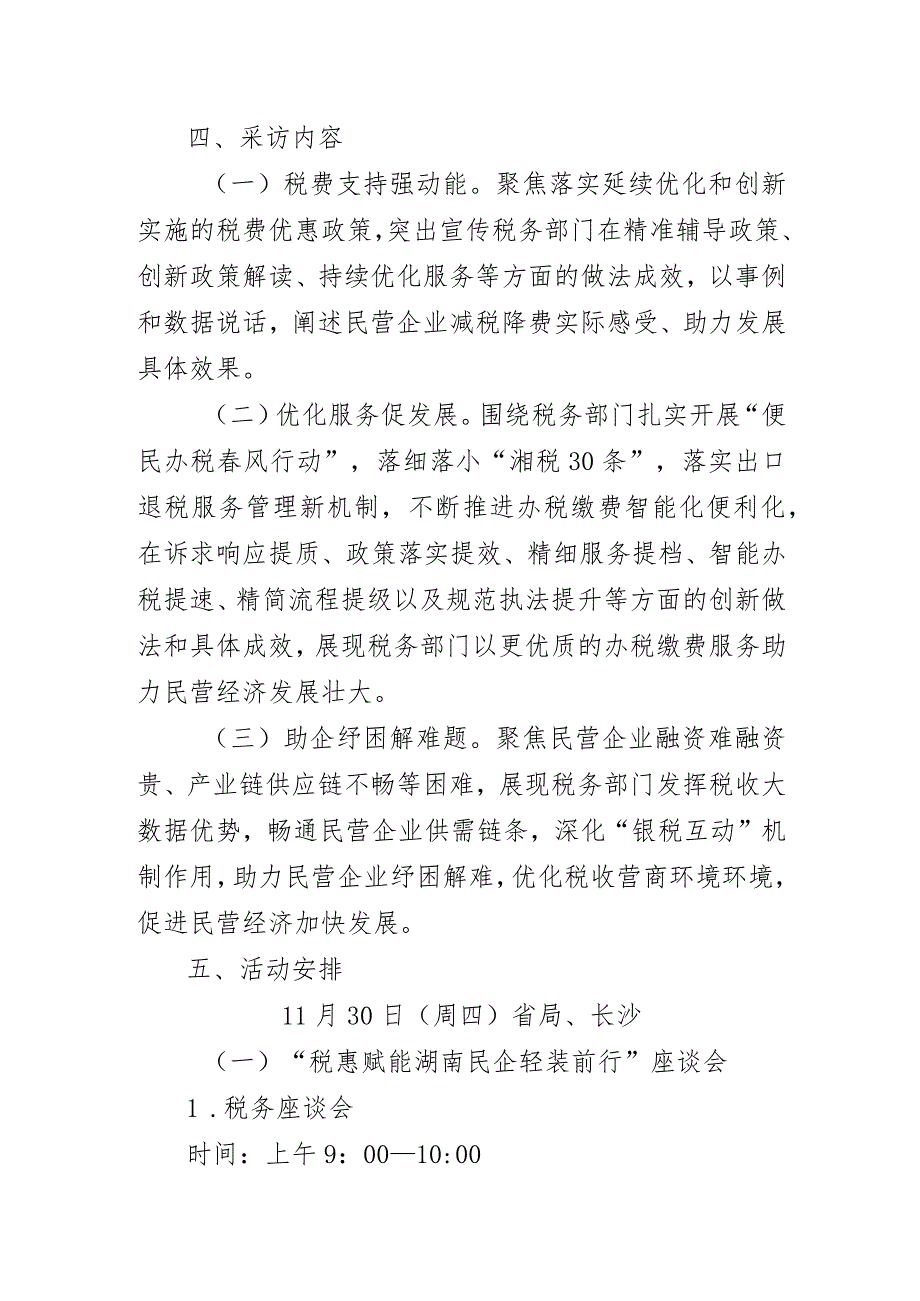 四、采访内容
（一）税费支持强动能。聚焦落实延续优化和创新
实施的税费优惠政策，突出宣传税务部门在精准辅导政策、
创新政策解读、持续优化服务等方面的做法成效，以事例
和数据说话，阐述民营企业减税降费实际感受、助力发展
具体效果。
（二）优化服务促发展。围绕税务部门扎实开展“便
民办税春风行动”，落细落小“湘税30条”，落实出口
退税服务管理新机制，不断推进办税缴费智能化便利化，
在诉求响应提质、政策落实提效、精细服务提档、智能办
税提速、精简流程提级以及规范执法提升等方面的创新做
法和具体成效，展现税务部门以更优质的办税缴费服务助
力民营经济发展壮大。
（三）助企纾困解难题。聚焦民营企业融资难融资
贵、产业链供应链不畅等困难，展现税务部门发挥税收大
数据优势，畅通民营企业供需链条，深化“银税互动”机
制作用，助力民营企业纾困解难，优化税收营商环境环境，
促进民营经济加快发展。
五、活动安排
11月30日（周四）省局、长沙
（一）“税惠赋能湖南民企轻装前行”座谈会
1 .税务座谈会
时间：上午9：00—10:00